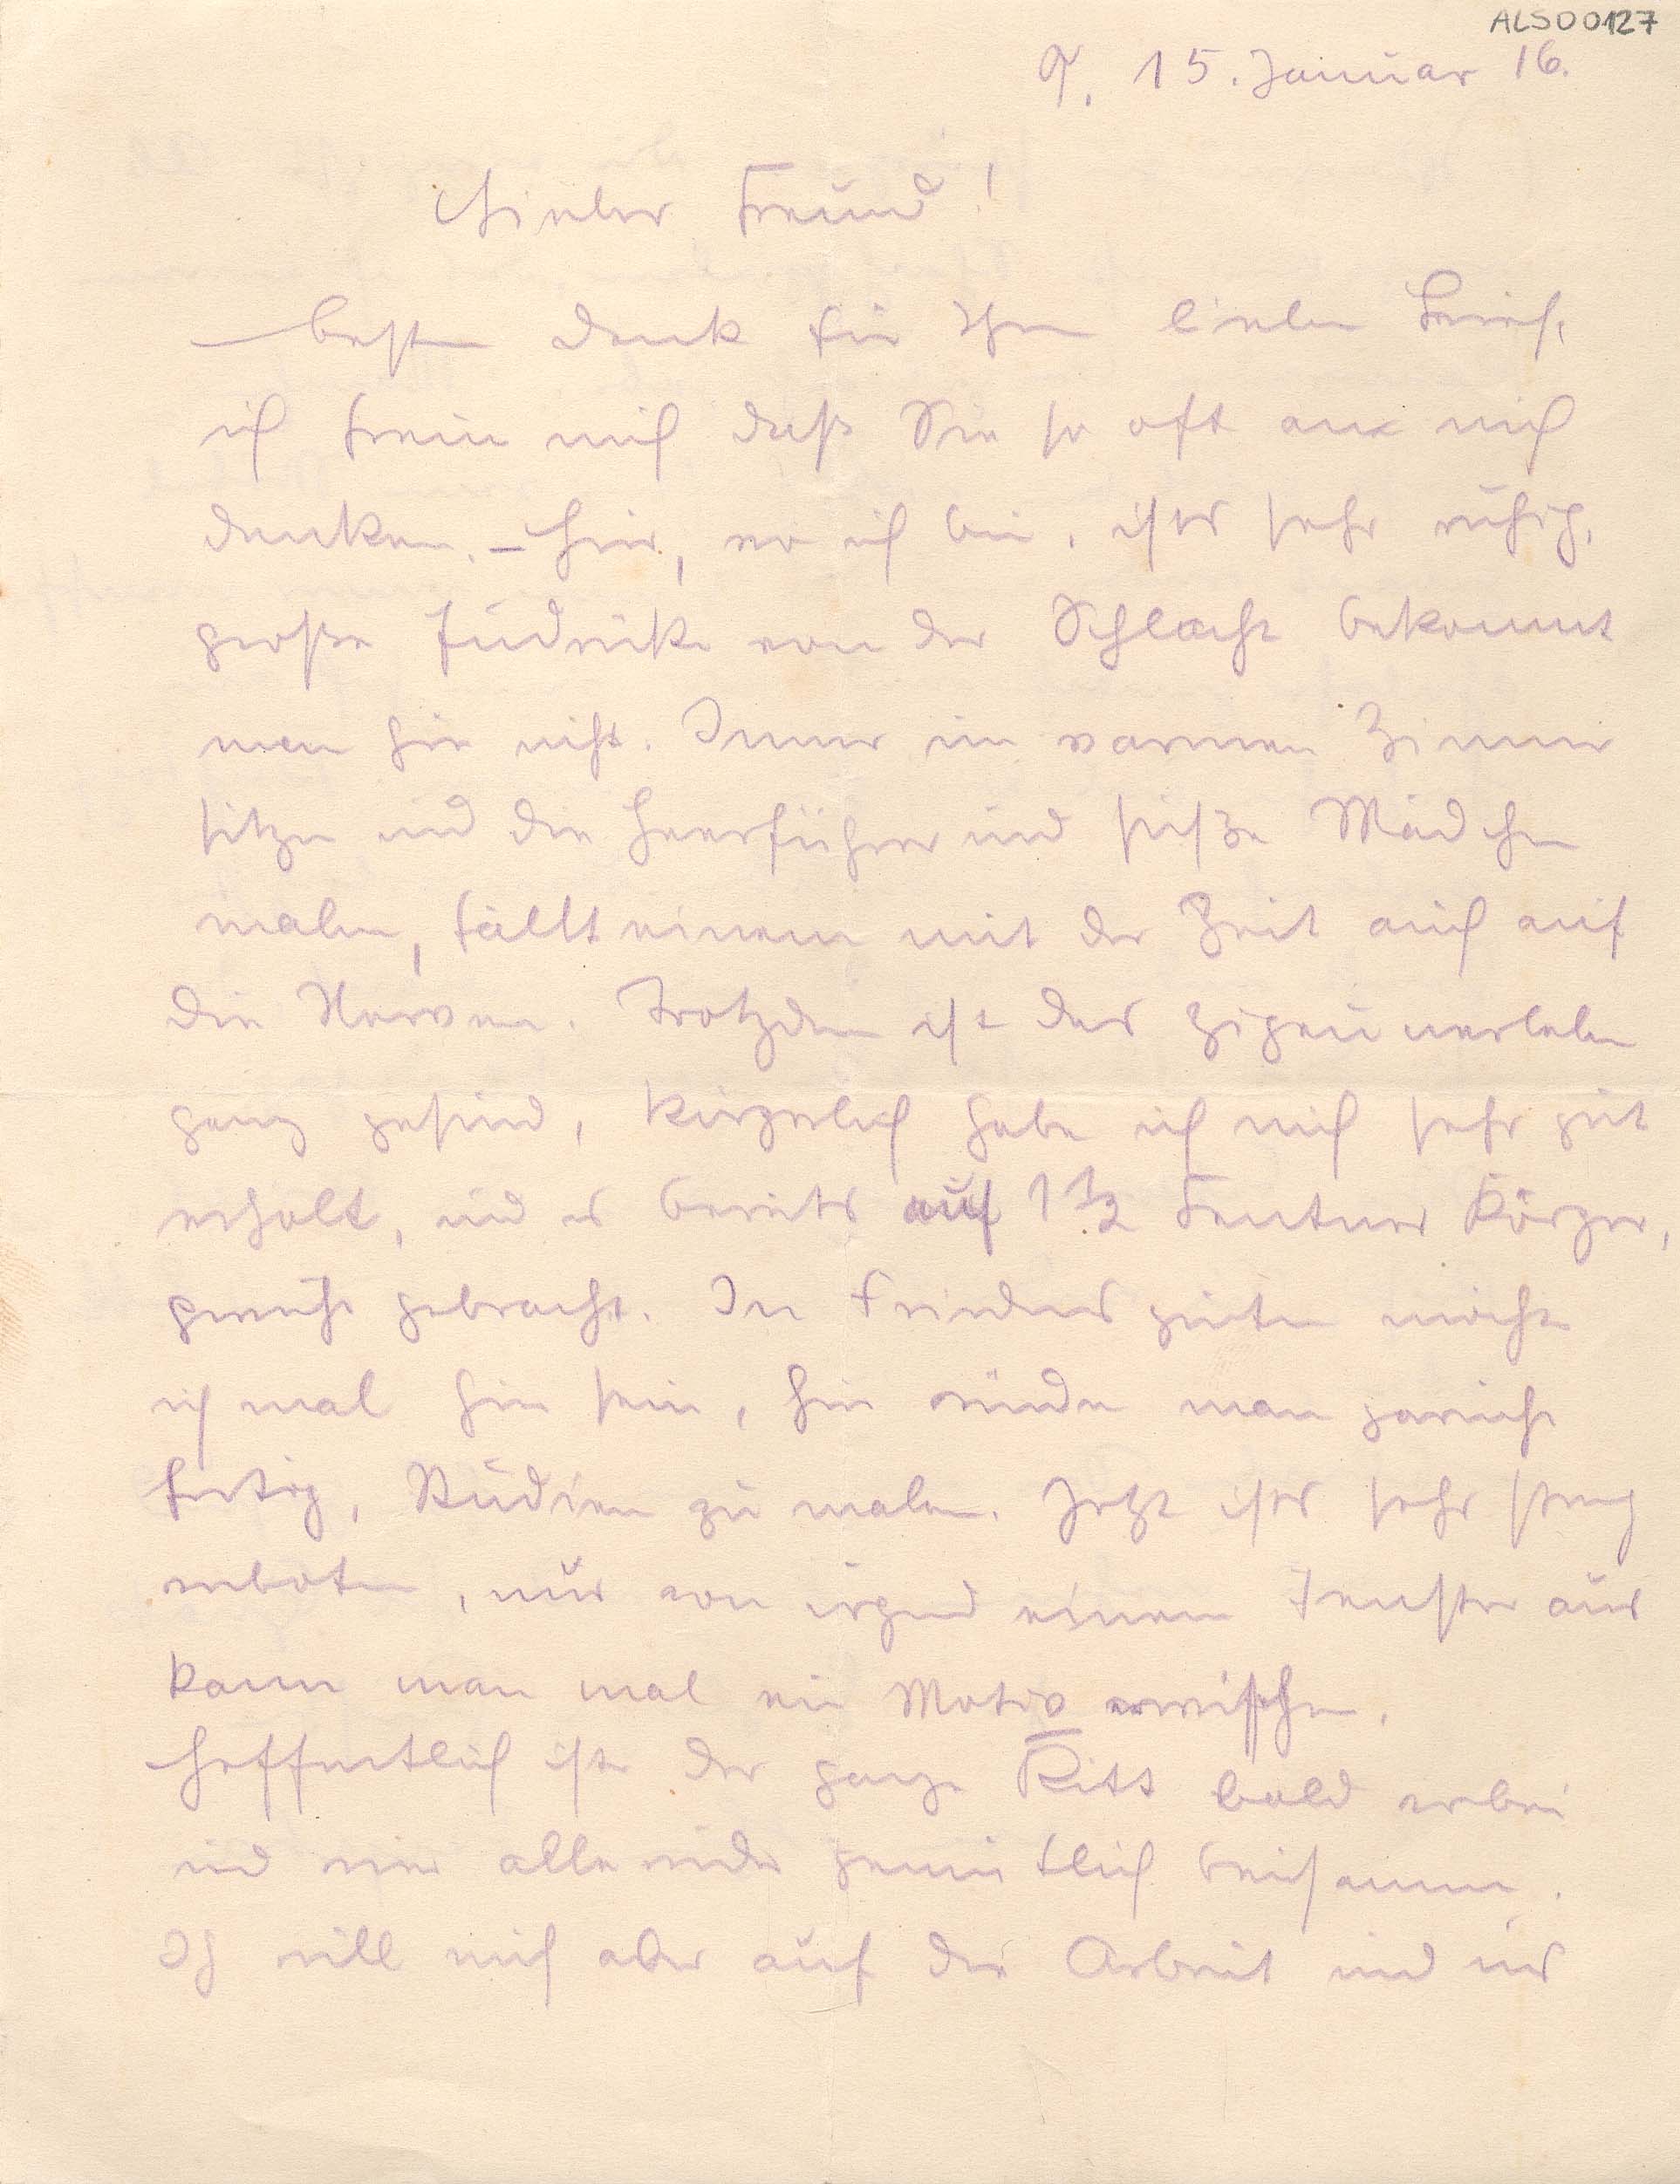 ALSO0127
Q. 15. Januar 16.
Lieber Freund!
Besten Dank für Ihren lieben Brief,
ich freue mich daß Sie so oft an mich
denken. – Hier, wo ich bin, ist es sehr ruhig,
große Eindrücke von der Schlacht bekommt
man hier nicht. Immer im warmen Zimmer
sitzen und die Heerführer und süße Mädchen
malen, fällt einem mit der Zeit auch auf
die Nerven. Trotzdem ist das Zigeunerleben
ganz gesund, körperlich habe ich mich sehr gut
erholt, und es bereits auf 1 1/2 Zentner Körper,
gewicht gebracht. In Friedenszeiten möchte
ich mal hier sein, hier würde man garnicht
fertig, Studien zu malen. Jetzt ist es sehr streng
verboten, nur von irgend einem Fenster aus
kann man mal ein Motiv erwischen.
Hoffentlich ist der ganze Kitt bald vorbei
und wir alle wieder gemütlich beisammen.
Ich will mich aber auf die Arbeit und uns